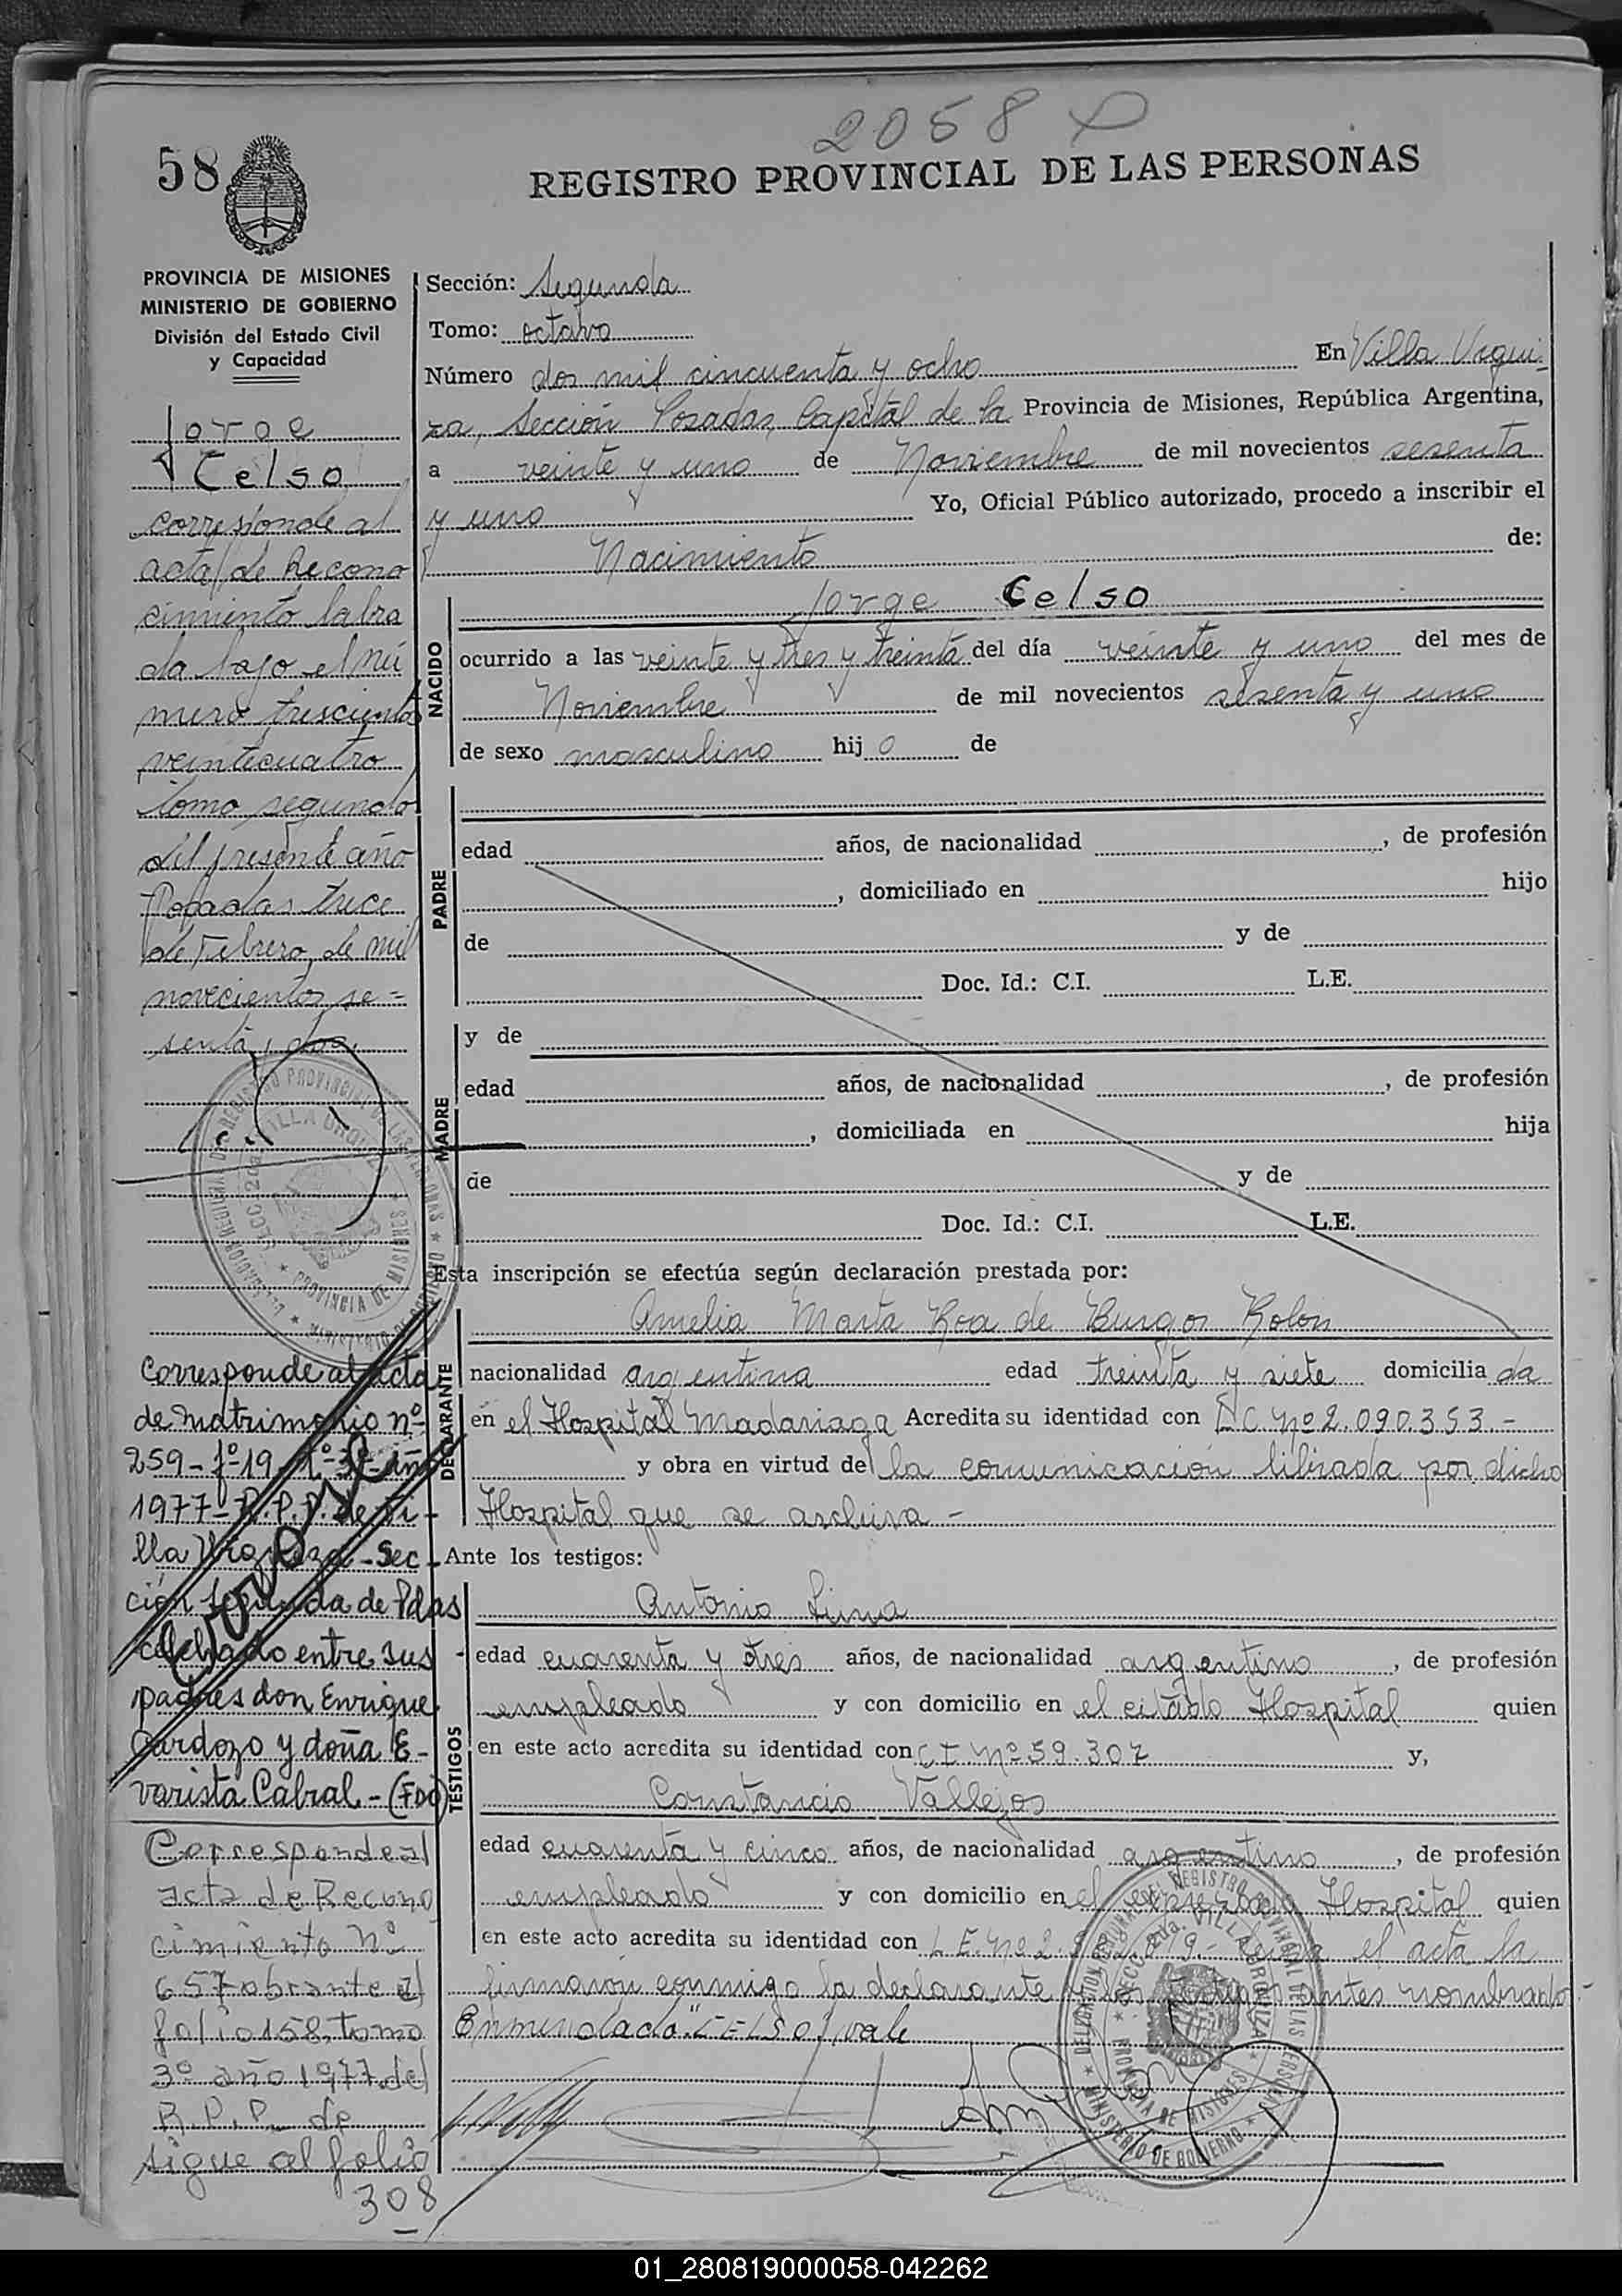 2058
58
REGISTRO PROVINCIAL DE LAS PERSONAS
PROVINCIA DE MISIONES
MINISTERIO DE GOBIERNO
División del Estado Civil
y Capacidad
Jorge
Celso
corresponde al
acta de Recono
cimiento labra
da bajo el nú
mero trescientos
veintecuatro
tomo segundo
del presente año
Posadas trece
de Febrero de mil
novecientos se=
senta y dos.
Corresponde al acta
de matrimonio nº
259-fº19 tº 3º año
1977-R.P.P. de Vi-
lla Urquiza-Sec-
ción Segunda de Pdas
celebrado entre sus
padres don Enrique
Cardozo y doña E-
varista Cabral-(FDO)
Corresponde al
acta de Recono
cimiento Nº
657 obrante al
folio 158, tomo
3º año 1977 del
R.P.P. de
sigue al folio
308
Sección: Segunda
Tomo: octavo
Número dos mil cincuenta y ocho En Villa Urqui-
za, Sección Posadas, Capital de la Provincia de Misiones, República Argentina,
a veinte y uno de Noviembre de mil novecientos sesenta
y uno Yo, Oficial Público autorizado, procedo a inscribir el
Nacimiento de:
NACIDO
Jorge Celso
ocurrido a las veinte y tres y treinta del día veinte y uno del mes de
Noviembre de mil novecientos sesenta y uno
de sexo masculino hij o de
PADRE
edad años, de nacionalidad , de profesión
, domiciliado en hijo
de y de
Doc. Id.: C.I. L.E.
MADRE
y de
edad años, de nacionalidad , de profesión
, domiciliada en hija
de y de
Doc. Id.: C.I. L.E.
Esta inscripción se efectúa según declaración prestada por:
DECLARANTE
Amelia Marta Roa de Burgos Kolon
nacionalidad argentina edad treinta y siete domicilia da
en el Hospital Madariaga Acredita su identidad con LC Nº 2.090.353.-
y obra en virtud de la comunicación librada por dicho
Hospital que se archiva -
Ante los testigos:
TESTIGOS
Antonio Lima
edad cuarenta y tres años, de nacionalidad argentino , de profesión
empleado y con domicilio en el citado Hospital quien
en este acto acredita su identidad con CI Nº 59.307 y,
Constancio Vallejos
edad cuarenta y cinco años, de nacionalidad argentino , de profesión
empleado y con domicilio en el expresado Hospital quien
en este acto acredita su identidad con L.E. Nº 2. el acta la
firmaron conmigo la declarante y los testigos antes nombrados-
Enmendado: "CELSO", vale
01_280819000058-042262